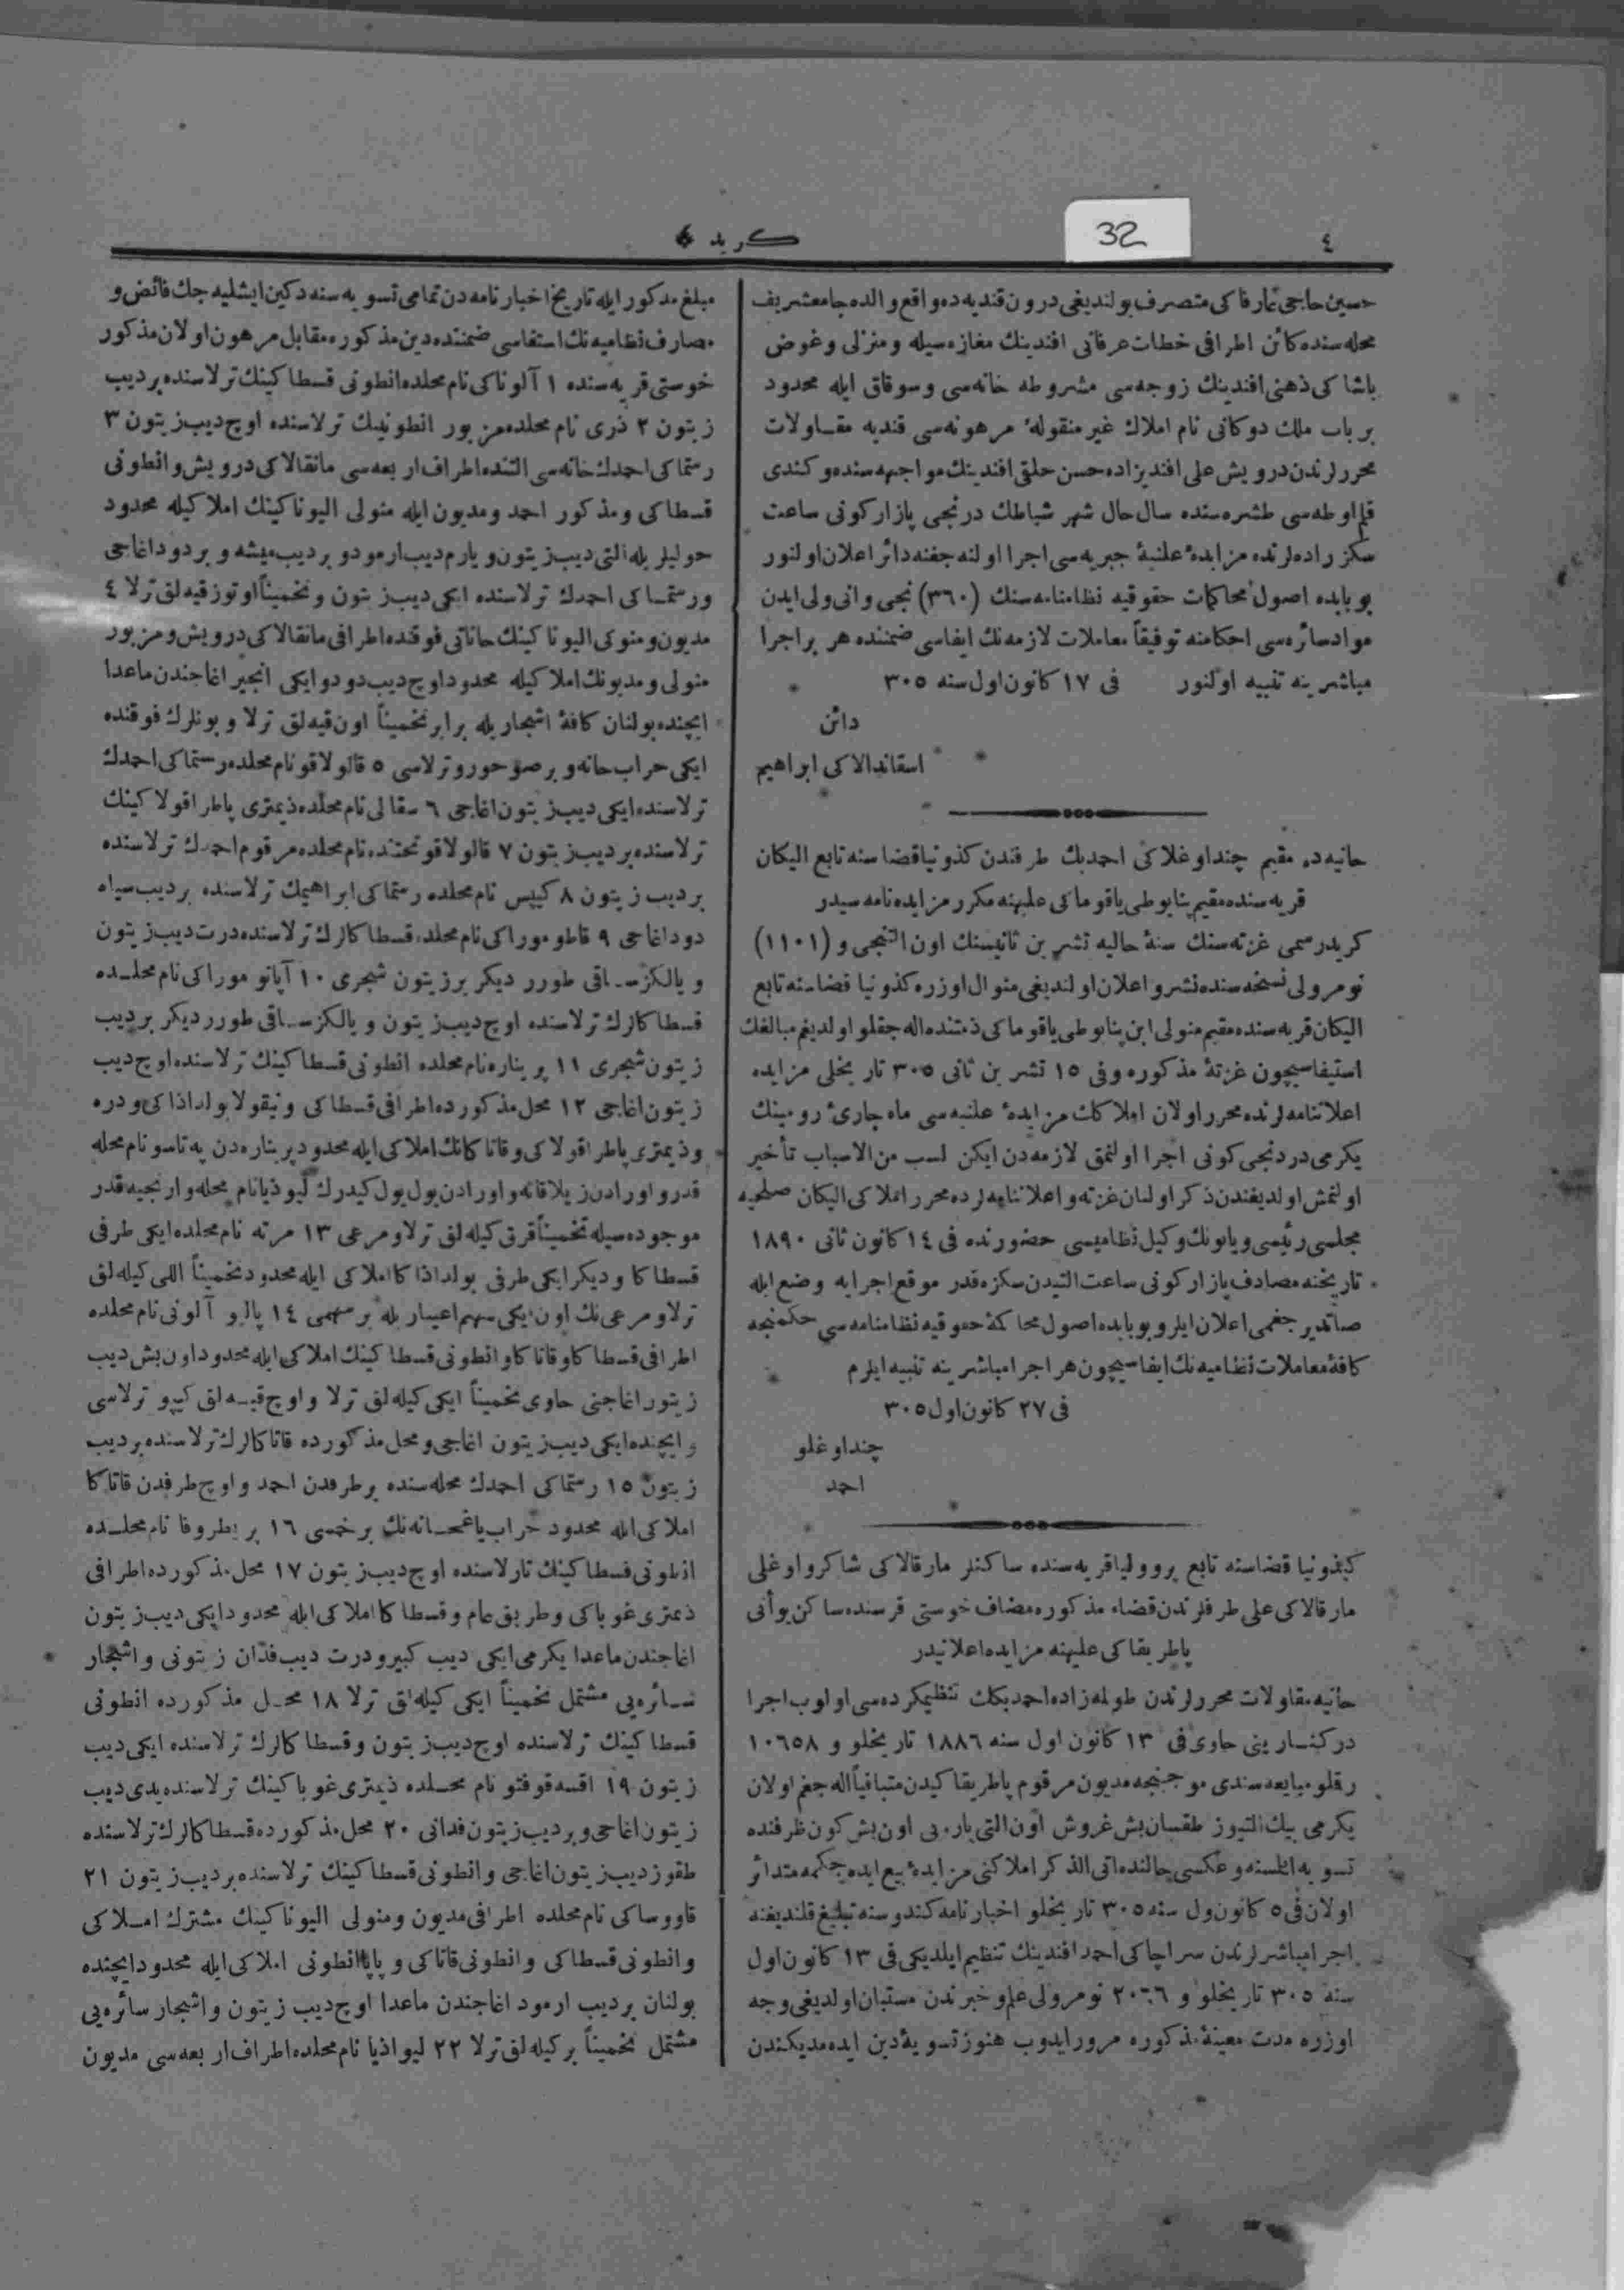 ٤
32
كريد
حسين حاجى عارفاكى متصرف بولنديغى درون قنديه ده واقع والده جامعشريف
محله سنده كائن اطرافى خطات عرفانى افندينك مغازه سيله ومنزلى وغوض
باشاكى ذهنى افندينك زوجه سى مشروطه خانه سى وسوقاق ايله محدود
بر باب ملك دوكانى نام املاك غير منقولهٔ مرهونه سى قنديه مقاولات
محررلرندن درويش على افنديزاده حسن حلقى افندينك مواجهه سنده وكندى
قلم اوطه سى طشره سنده سال حال شهر شباطك درنجى پازاركونى ساعت
سكز راده لرنده مزايدهٔ علنيهٔ جبريه سى اجرا اولنه جغنه دائر اعلان اولنور
بو بابده اصول محاكمات حقوقيه نظامنامه سنك (٣٦٠) نجى وانى ولى ايدن
مواد سائره سى احكامنه توفيقاً معاملات لازمه نك ايفاسى ضمننده هر بر اجرا
مباشرينه تنبيه اولنور فى ١٧ كانون اول سنه ٣٠٥
دائن
اسقاندالاكى ابراهيم
حانيه ده مقيم چنداوغلاكى احمد بك طرفندن كذونيا قضاسنه تابع اليكان
قريه سنده مقيم پنايوطى ياقوماكى علیهنه مكرر مزايده نامه سيدر
كريد رسمى غزته سنك سنهٔ حاليه تشرين ثانيسنك اون التنجى و (١١٠١)
نومرولى نسخه سنده نشر واعلان اولنديغى منوال اوزره كذونيا قضاسنه تابع
اليكان قريه سنده مقيم منولى ابن پنايوطى ياقوماكى ذمتنده اله جقلو اولديغم مبالغك
استيفاسيچون غزتهٔ مذكوره وفى ١٥ تشرين ثانى ٣٠٥ تاريخلى مزايده
اعلاننامه لرنده محرر اولان املاكك مزايدهٔ علنيه سى ماه جارئ رومينك
يكرمى دردنجى كونى اجرا اولنمق لازمه دن ايكن لسبب من الاسباب تأخير
اولنمش اولديغندن ذكر اولنان غزته واعلاننامه لرده محرر املاكى اليكان صلحيه
مجلسى رئيسى ويا نونك وكيل نظاميسى حضورنده فى ١٤ كانون ثانى ١٨٩٠
تاريخنه مصادف پازار كونى ساعت التيدن سكزه قدر موقع اجرايه وضع ايله
صاتديرجغمى اعلان ايلر وبو بابده اصول محاكمهٔ حقوقيه نظامنامه سى حكمنجه
كافهٔ معاملات نظاميه نك ايفاسيچون هر اجرا مباشرينه تنبيه ايلرم
فى ٢٧ كانون اول ٣٠٥
چنداوغلو
احمد
كيذونيا قضاسنه تابع پروولياقريه سنده ساكنلر مارقالاكى شاكر واوغلى
مارقالاكى على طرفلرندن قضاء مذكوره مضاف خوستى قرسنده ساكن يوأنى
پاطريقاكى علیهنه مزايده اعلانيدر
حانيه مقاولات محررلرندن طولمه زاده احمد بكك تنظيمكرده سى اولوب اجرا
دركنارينى حاوى فى ١٣ كانون اول سنه ١٨٨٦ تاريخلو و ١٠٦٥٨
رقلو مبايعه سندى موجبنجه مديون مرقوم پاطريقاكيدن متباقياً اله جغم اولان
يكرمى بيك التيوز طقسان بش غروش اون التى پاره يى اون بش كون ظرفنده
تسويه ايتلسنه وعكسى حالنده اتى الذكر املاكنى مزايدهٔ بيع ايده جكمه متدائر
اولان فى ٥ كانون ول سنه ٣٠٥ تاريخلو اخبارنامه كندوسنه تبليغ قلنديغنه
اجرا مباشرلرندن سراچاكى احمد افندينك تنظيم ايلديكى فى ١٣ كانون اول
سنه ٣٠٥ تاريخلو و ٢٠٦٦ نومرولى علم وخبرندن مستبان اولديغى وجه
اوزره مدت معينهٔ مذكوره مرور ايدوب هنوز تسويهٔ دين ايده مديكندن
مبلغ مذكور ايله تاريخ اخبارنامه دن تمامى تسويه سنه دكين ايشليه جك فائض و
مصارف نظاميه نك استقاسى ضمننده دين مذكوره مقابل مرهون اولان مذكور
خوستى قريه سنده ١ آلوناكى نام محلده انطونى قسطاكينك ترلاسنده بر ديب
زيتون ٢ ذرى نام محلده مزبور انطونينك ترلاسنده اوچ ديب زيتون ٣
رستماكى احمدك خانه سى التنده اطراف اربعه سى مانقالاكى درويش وانطونى
قسطاكى ومذكور احمد ومديون ايله منولى اليوناكينك املاكيله محدود
حوليلريله التى ديب زيتون ويارم ديب ارمود و بر ديب ميشه و بر دود اغاجى
ورستماكى احمدك ترلاسنده ايكى ديب زيتون وتخميناً اوتوز قيه لق ترلا ٤
مديون ومنوكى اليوناكينك حاناتى فوقنده اطرافى مانقالاكى درويش ومزبور
منولى ومديونك املاكيله محدود اوچ ديب دود و ايكى انجير اغاجندن ماعدا
ايچنده بولنان كافهٔ اشجاريله برابر تخميناً اون قيه لق ترلا و بونلرك فوقنده
ايكى حراب حانه و بر صو حور و ترلاسى ٥ قالولاقو نام محلده رستماكى احمدك
ترلاسنده ايكى ديب زيتون اغاجى ٦ سقالى نام محلده ذيمترى پاطراقولاكينك
ترلاسنده بر ديب زيتون ٧ قالولاقو تحتنده نام محلده مرقوم احمدك ترلاسنده
بر ديب زيتون ٨ كيپس نام محلده رستماكى ابراهيمك ترلاسنده بر ديب سياه
دود اغاجى ٩ قاطو موراكى نام محلده قسطاكالرك ترلاسنده درت ديب زيتون
و يالكز ساقى طورر ديكر بر زيتون شجرى ١٠ آپانو موراكى نام محلده
قسطاكالرك ترلاسنده اوچ ديب زيتون و يالكز ساقى طورر ديكر بر ديب
زيتون شجرى ١١ پريناره نام محلده انطونى قسطاكينك ترلاسنده اوچ ديب
زيتون اغاجى ١٢ محل مذكورده اطرافى قسطاكى ونيقولا بولداذاكى ودره
وذيمترى پاطراقولاكى وقاناكانك املاكى ايله محدود پريناره دن په تاسو نام محله
قدر واورادن زيلاقانه واورادن يول يول كيدرك ليوذيا نام محله وارنجيه قدر
موجوده سيله تخميناً قرق كيله لق ترلا ومرعى ١٣ مرته نام محلده ايكى طرفى
قسطاكا وديكر ايكى طرفى بولداذاكا املاكى ايله محدود تخميناً اللى كيله لق
ترلا ومرعى نك اون ايكى سهم اعتباريله بر سهمى ١٤ پاليو آلونى نام محلده
اطرافى قسطاكا وقاناكا وانطونى قسطاكينك املاكى ايله محدود اون بش ديب
زيتون اغاجنى حاوى تخميناً ايكى كيله لق ترلا و اوچ قيه لق كيپو ترلاسى
و ايچنده ايكى ديب زيتون اغاجى ومحل مذكورده قاناكالرك ترلاسنده بر ديب
زيتون ١٥ رستماكى احمدك محله سنده بر طرفدن احمد و اوچ طرفدن قاناكا
املاكى ايله محدود حراب ياغخانه نك بر خمسى ١٦ پريطروفا نام محلده
انطونى قسطاكينك تارلاسنده اوچ ديب زيتون ١٧ محل مذكورده اطرافى
ذيمترى غوياكى وطريق عام وقسطاكا املاكى ايله محدود ايكى ديب زيتون
اغاجندن ماعدا يكرمى ايكى ديب كبير ودرت ديب فدان زيتونى واشجار
سائره يى مشتمل تخميناً ايكى كيله لق ترلا ١٨ محل مذكورده انطونى
قسطاكينك ترلاسنده اوچ ديب زيتون وقسطاكالرك ترلاسنده ايكى ديب
زيتون ١٩ اقسه قوفتو نام محلده ذيمترى غوياكينك ترلاسنده يدى ديب
زيتون اغاجى و بر ديب زيتون فدانى ٢٠ محل مذكورده قسطاكالرك ترلاسنده
طقوز ديب زيتون اغاجى وانطونى قسطاكينك ترلاسنده بر ديب زيتون ٢١
قاووساكى نام محلده اطرافى مديون ومنولى اليوناكينك مشترك املاكى
وانطونى قسطاكى وانطونى قاناكى و پاپا انطونى املاكى ايله محدود ايچنده
بولنان بر ديب ارمود اغاجندن ماعدا اوچ ديب زيتون واشجار سائره يى
مشتمل تخميناً بر كيله لق ترلا ٢٢ ليواذيا نام محلده اطراف اربعه سى مديون